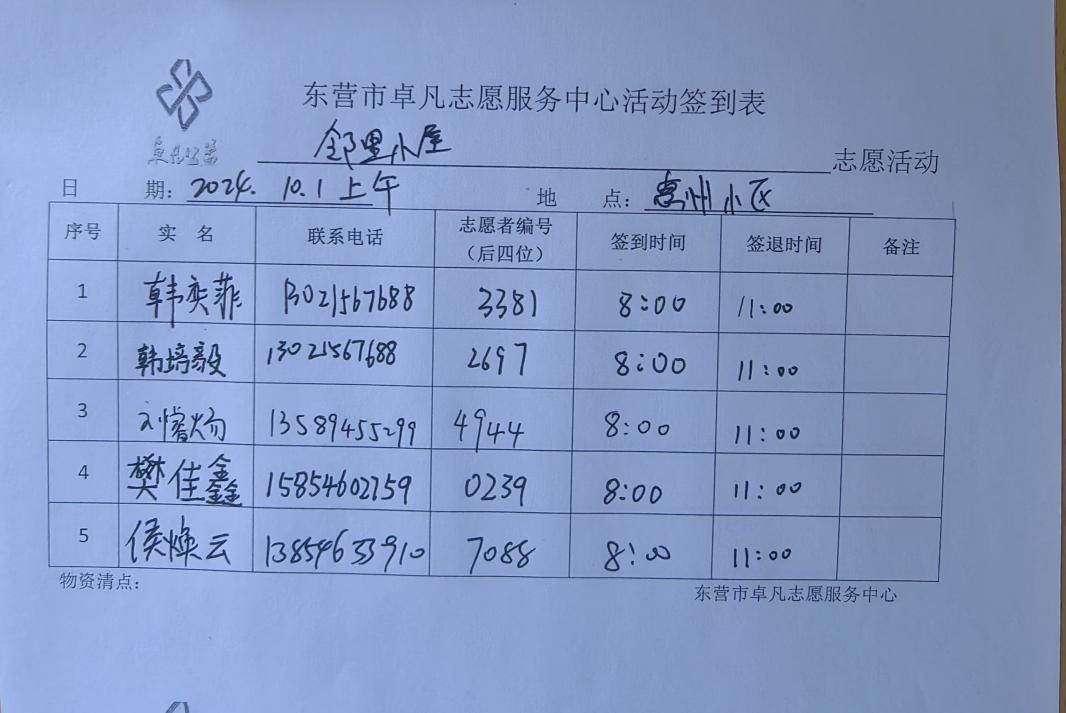 东营市卓凡志愿服务中心活动签到表
卓凡公益
邻里小屋 志愿活动
日 期：2024.10.1上午 地 点：惠州小区
序号 实 名 联系电话 志愿者编号（后四位） 签到时间 签退时间 备注
1 韩奕菲 13021567688 3381 8:00 11:00
2 韩培毅 13021567688 2697 8:00 11:00
3 刘睿炀 13589455299 4944 8:00 11:00
4 樊佳鑫 15854602759 0239 8:00 11:00
5 侯焕云 13854633910 7088 8:00 11:00
物资清点： 东营市卓凡志愿服务中心